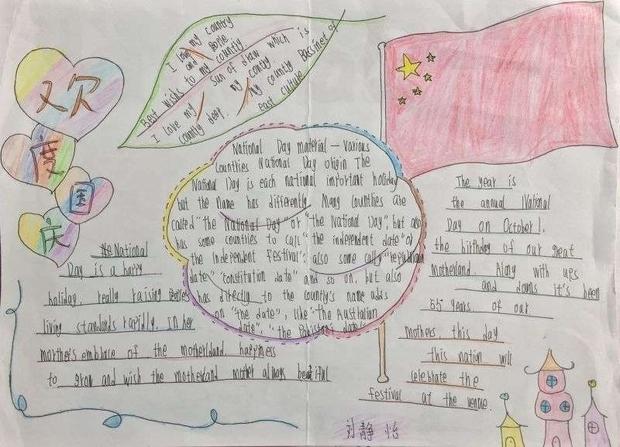 欢
度
国
庆
I love my country
and people
Best wishes to my country
I love my sun of draw which is
country deep. my country
My country Bassinet of
east culture
National Day material - Various
Countries National Day origin The
National Day is each national important holiday
but the name has differently. Many countries are
called "the National Day" or "the National Day", but also
has some countries to call "the independent date" or
"the independent Festival", also some call "republican
date" "constitution date" and so on, but also
has directly to the country's name adds
on "the date", like "the Australian
date", "the Pakistani date"
The year is
the annual National
Day on October 1.
the birthday of our great
motherland. Along with ups
and downs it's been
65 years of our
mothers this day
this nation will
celebrate the
festival at the venue.
National
Day is a happy
holiday, really raising
living standards rapidly. In her
morther's embrace of the motherldand happiness
to grow and wish the motherland mother always beautiful
刘静怡